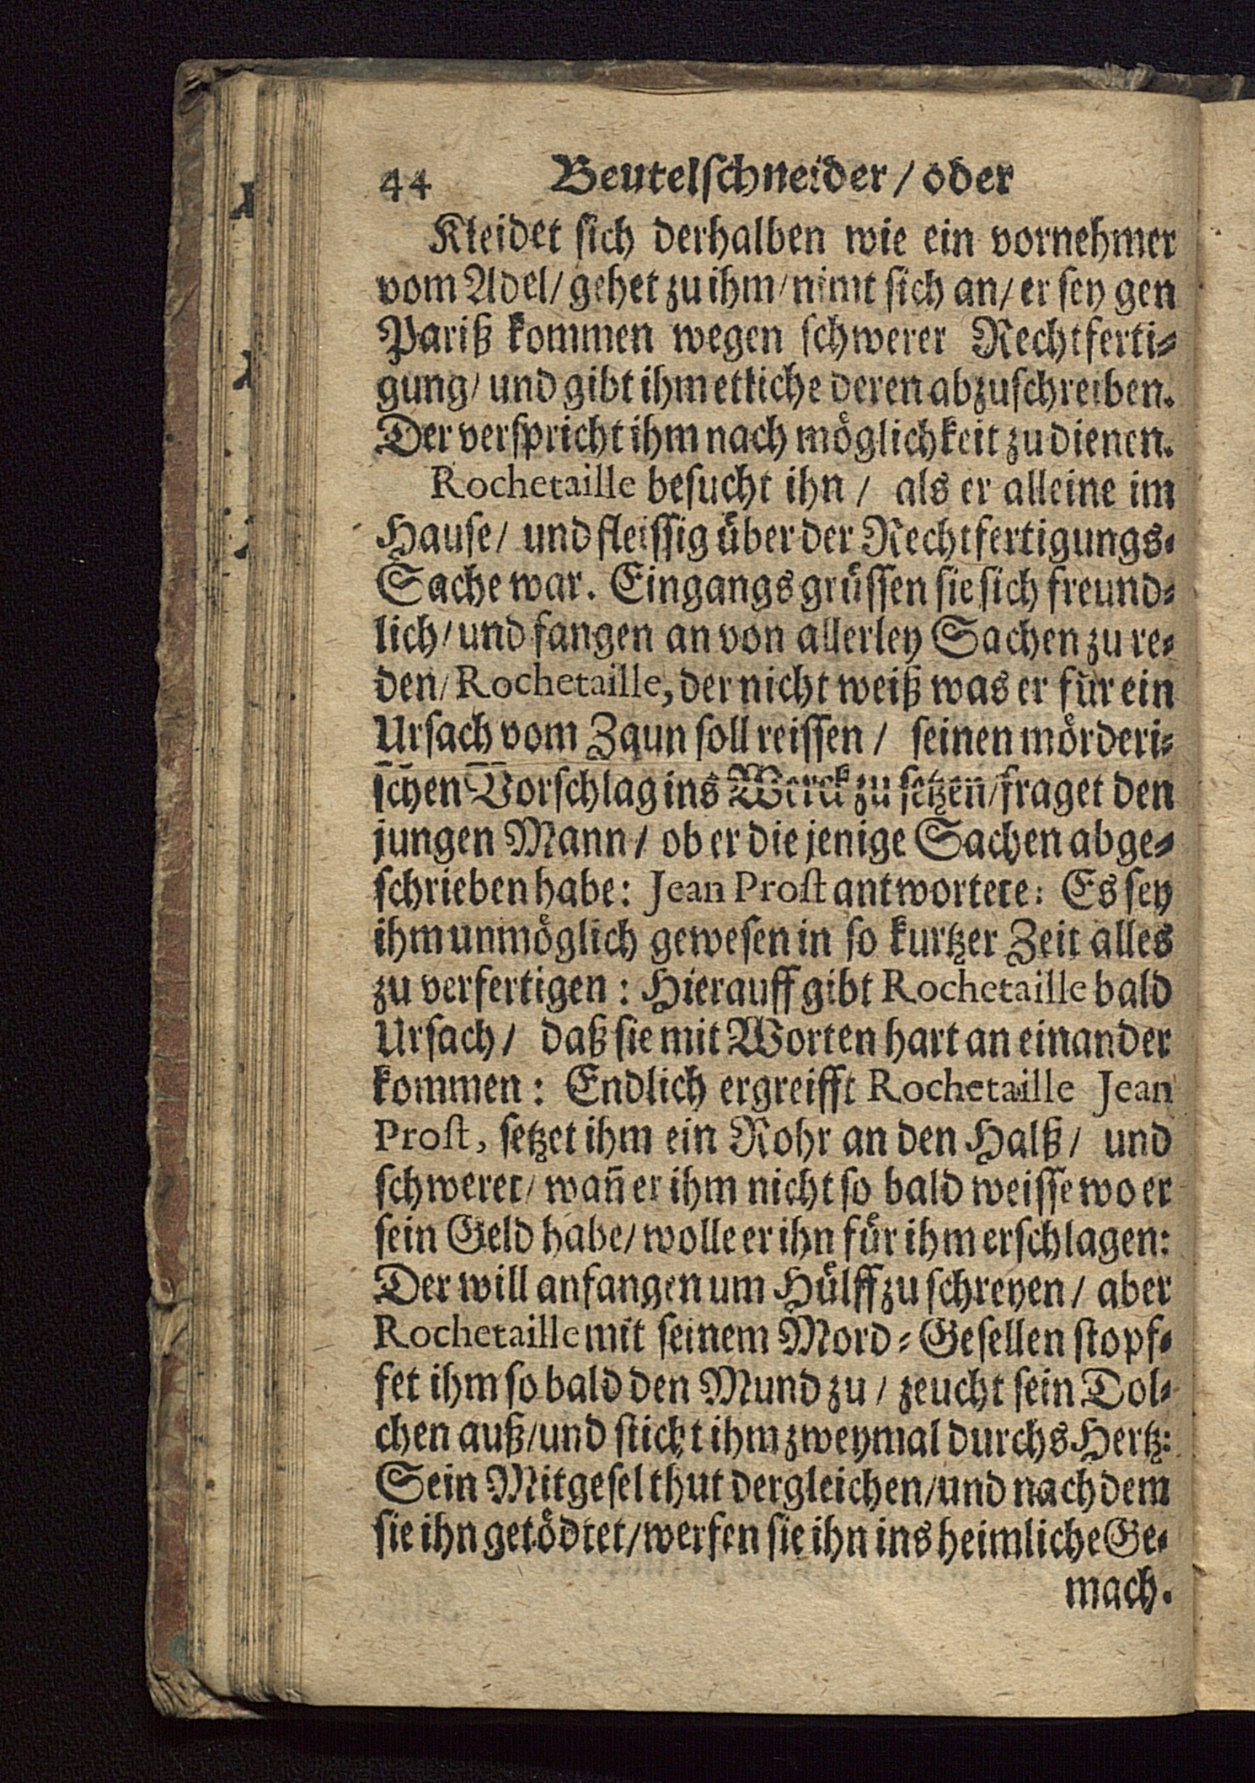 44 Beutelschneider / oder
Kleidet sich derhalben wie ein vornehmer
vom Adel / gehet zu ihm / nimt sich an / er sey gen
Pariß kommen wegen schwerer Rechtferti-
gung / und gibt ihm etliche deren abzuschreiben.
Der verspricht ihm nach möglichkeit zu dienen.
Rochetaille besucht ihn / als er alleine im
Hause / und fleissig über der Rechtfertigungs-
Sache war. Eingangs grüssen sie sich freund-
lich / und fangen an von allerley Sachen zu re-
den / Rochetaille, der nicht weiß was er für ein
Ursach vom Zaun soll reissen / seinen mörderi-
schen Vorschlag ins Werck zu setzen / fraget den
jungen Mann / ob er die jenige Sachen abge-
schrieben habe: Jean Prost antwortete: Es sey
ihm unmöglich gewesen in so kurtzer Zeit alles
zu verfertigen: Hierauff gibt Rochetaille bald
Ursach / daß sie mit Worten hart an einander
kommen: Endlich ergreifft Rochetaille Jean
Prost, setzet ihm ein Rohr an den Halß / und
schweret / wañ er ihm nicht so bald weisse wo er
sein Geld habe / wolle er ihn für ihm erschlagen:
Der will anfangen um Hülff zu schreyen / aber
Rochetaille mit seinem Mord-Gesellen stopf-
fet ihm so bald den Mund zu / zeucht sein Dol-
chen auß / und sticht ihm zweymal durchs Hertz:
Sein Mitgesel thut dergleichen / und nach dem
sie ihn getödtet / werfen sie ihn ins heimliche Ge-
mach.